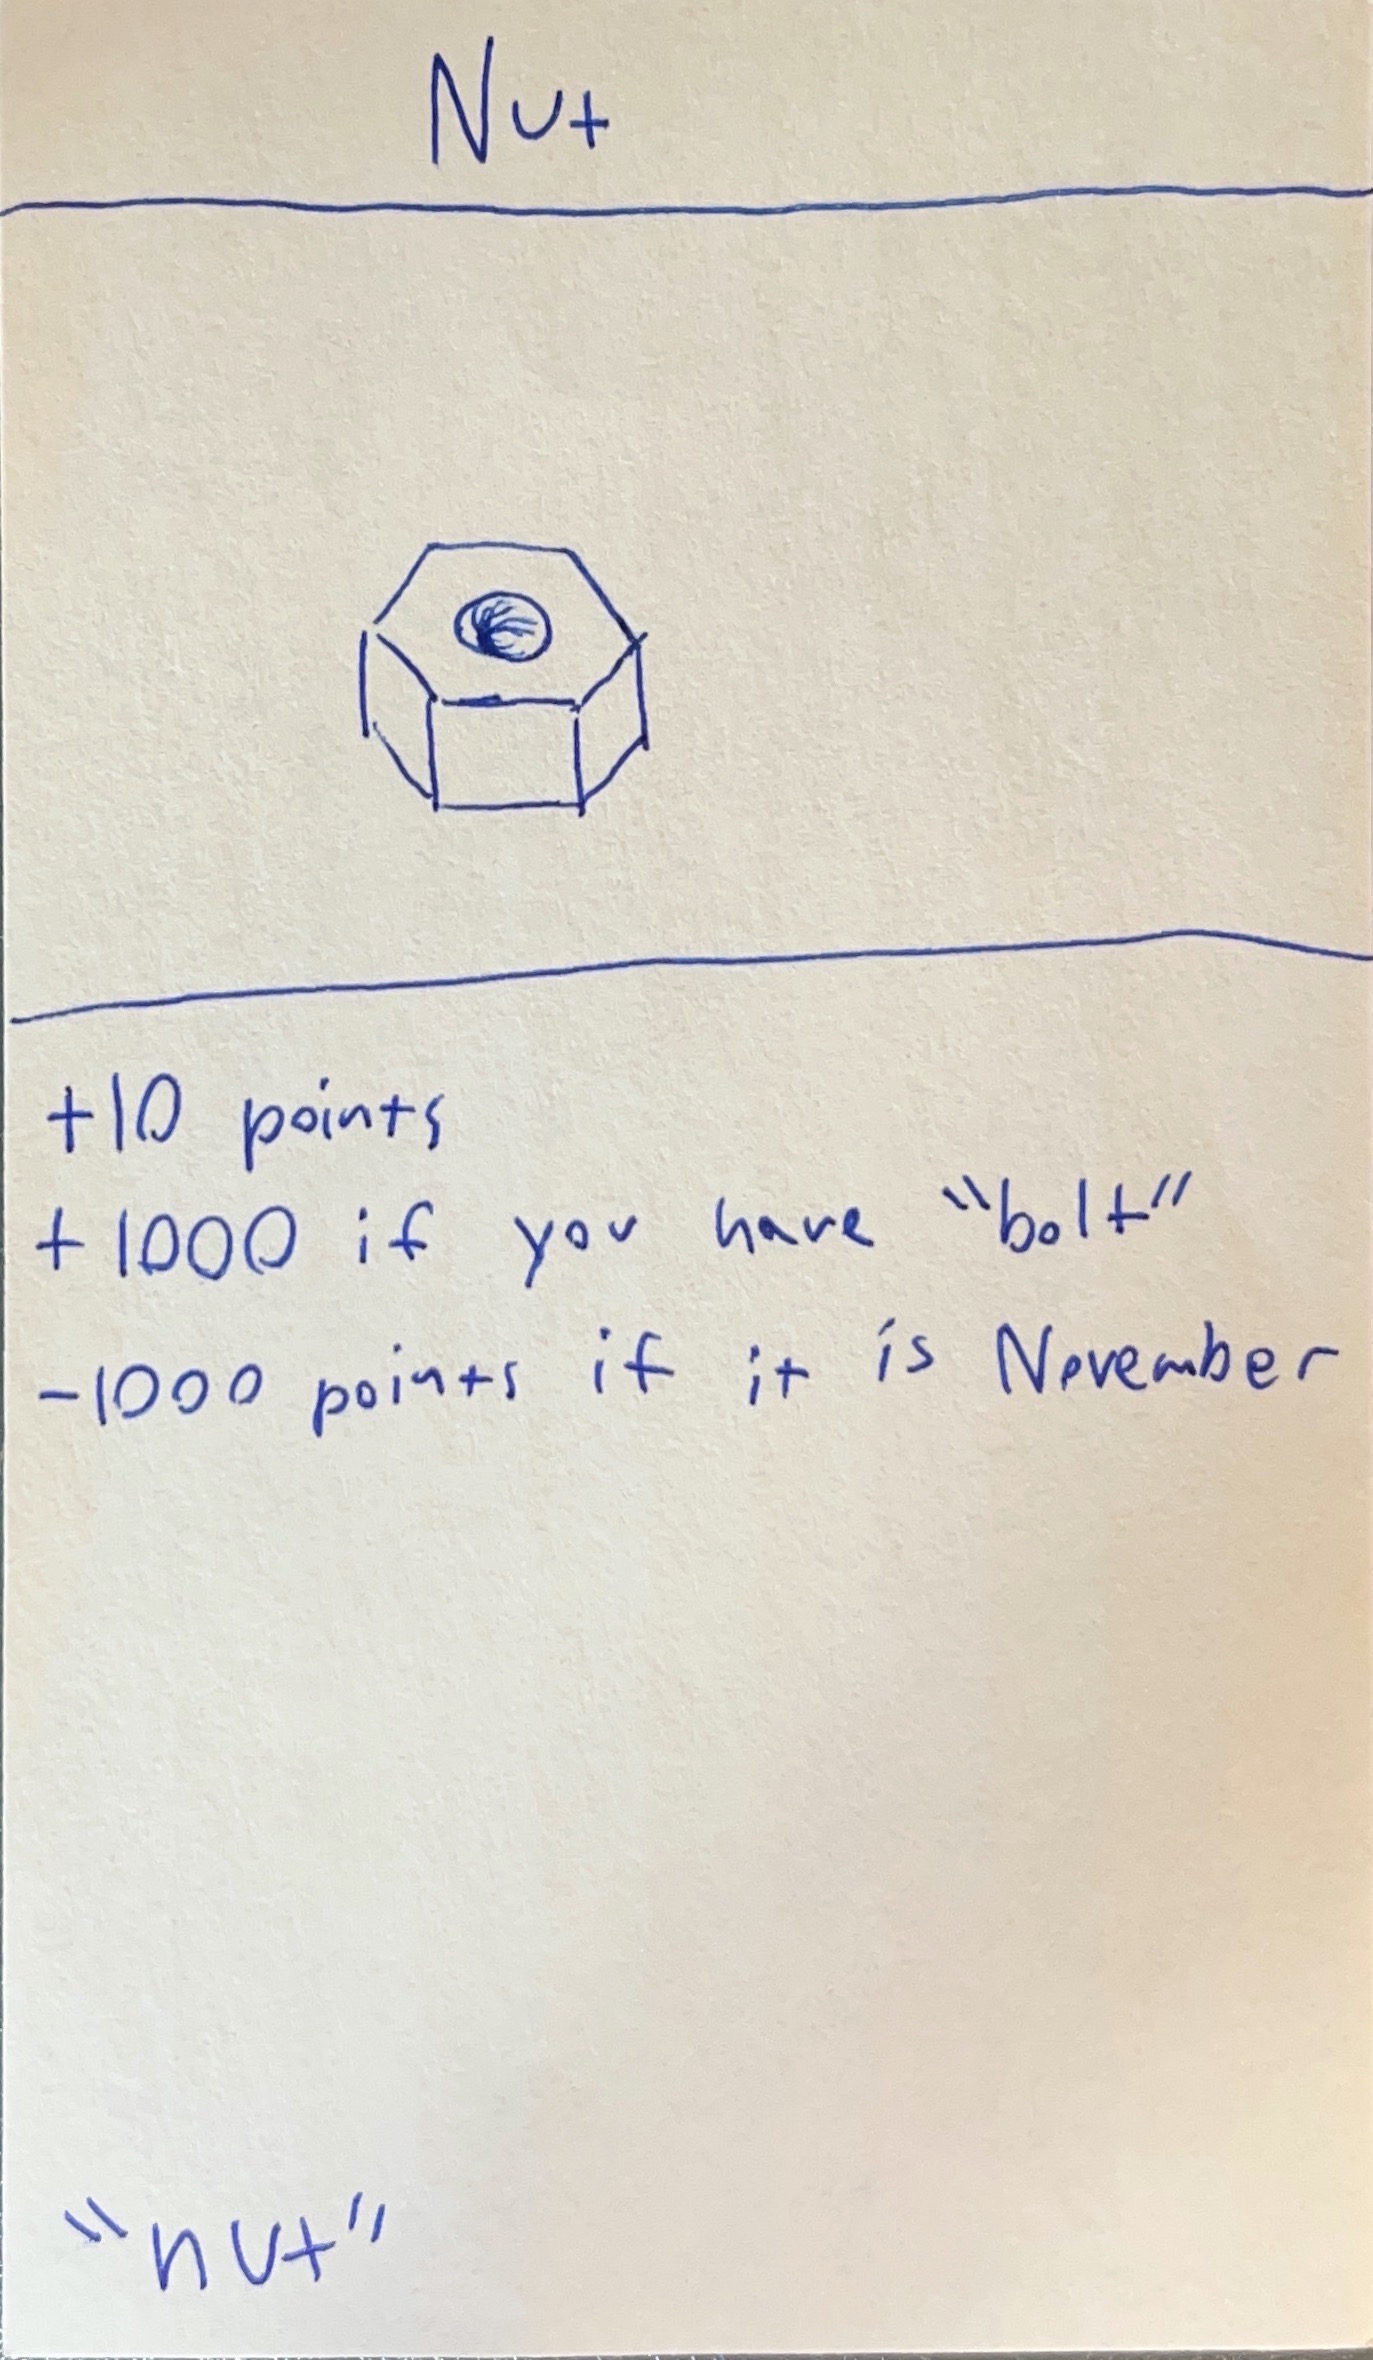 Nut
+10 points
+1000 if you have "bolt"
-1000 points if it is November
"nut"